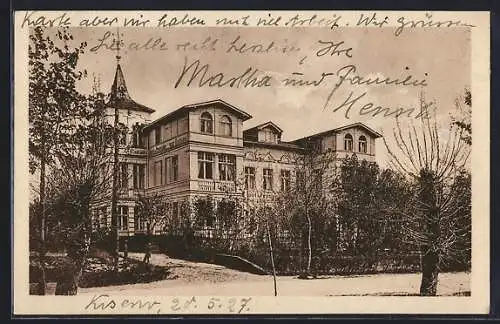 Karte aber wir haben viel Arbeit. Wir grüssen
Sie alle recht herzlich, Ihre
Martha und Familie
Henrik
20. 5. 27.